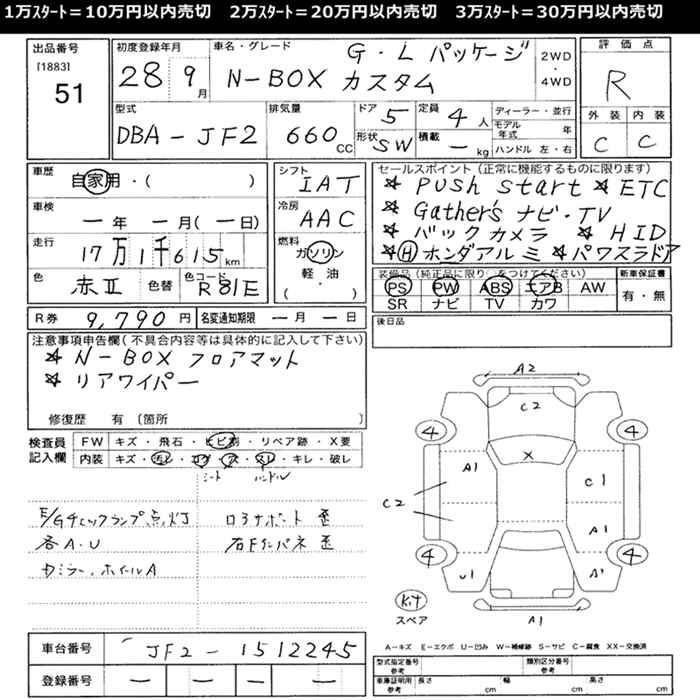 1万ｽﾀｰﾄ＝10万円以内売切　2万ｽﾀｰﾄ＝20万円以内売切　3万ｽﾀｰﾄ＝30万円以内売切
出品番号
[1883]
51
初度登録年月
28 9月
車名・グレード
G・L パッケージ
N-BOX カスタム
2WD
・
4WD
評価点
R
外装 内装
C C
型式
DBA-JF2
排気量
660 CC
ドア 5
形状 SW
定員 4 人
積載 ー kg
ディーラー・並行
モデル年式 年
ハンドル 左・右
車歴
自家用・( )
車検
ー年 ー月(ー日)
走行
17万1千615km
色
赤II
色替
色コード
R81E
シフト
IAT
冷房
AAC
燃料
ガソリン
軽・油
( ・ )
セールスポイント（正常に機能するものに限ります）
☆ PUSH start ☆ ETC
☆ Gather's ナビ・TV
☆ バックカメラ ☆ HID
☆ Ⓗホンダアルミ ☆パワスラドア
装備品（純正品に限り○をつけてください）
PS PW ABS エアB AW
SR ナビ TV カワ
新車保証書
有・無
R券 9,790 円 名変通知期限 ー月ー日
後日品
注意事項申告欄(不具合内容等は具体的に記入して下さい)
☆ N-BOX フロアマット
☆ リアワイパー
修復歴 有 〔箇所 〕
検査員
記入欄
FW キズ・飛石・ヒビ割・リペア跡・X要
内装 キズ・汚レ・コゲ・穴・スレ・キレ・破レ
シート ハンドル
E/Gチェックランプ点灯
各A・U
ロアサポート 歪
右Fインパネ 歪
カミラー、ホイールA
A2
C2
4 4
X
A1 C1
C2
A1
4 4
U1 A1
A1
Kit
スペア
A－キズ E－エクボ U－凹み W－補修跡 S－サビ C－腐食 XX－交換済
車台番号 JF2-1512245
登録番号 ー ー ー ー
型式指定番号
参考
類別区分番号
参考
車庫証明用
参考
長さ cm 幅 cm 高さ cm